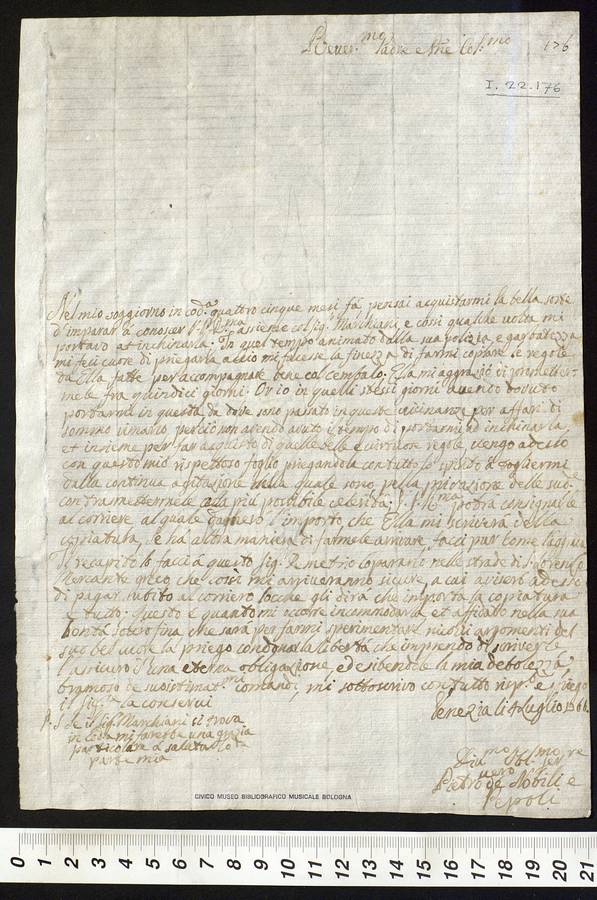 Rever.mo Padre e Pne Col.mo
176
I. 22. 176
Nel mio soggiorno in cod.a quattro cinque mesi fà pensai acquistarmi la bella sorte
d'imparar à conoscer assieme col Sig. Marchiani, e così qualche volta mi
portavo ad inchinarla. In quel tempo animato dalla sua polizia, e garbatezza
mi feci cuore di priegarla acciò mi facesse la finezza di farmi copiare le regole
da Ella fatte per accompagnare bene col cembalo. Ella mi aggraziò di prometter-
mele fra quindici giorni. Or io in quelli stessi giorni avendo dovuto
portarmi in questa, da dove sono passato in queste vicinanze per affari di
sommo rimarco perciò non avendo avuto il tempo di portarmi ad inchinarla,
et insieme per far acquisto di quelle belle e virtuose regole, vengo adesso
con questo mio rispettoso foglio priegandola con tutto lo spirito à togliermi
dalla continua agitazione nella quale sono, pella privazione delle sud.e
con trasmettermele colla più possibile celerità; potrà consignarle
al corriere, al quale l'importo, che Ella mi scriverà della
copiatura, e hà altra maniera di farmele arrivare, facci pur come li
Il recapito lo facci à questo Sig. Demetrio nelle strade di S. Lorenzo
Mercante greco che così mi arriveranno sicure, a cui avisero adesso
di pagar subito al corriero locche gli dirà che importa la copiatura
e tutto. Questo è quanto mi occorre incommodarla, et affidato nella sua
bontà sopraffina che sarà per farmi sperimentare nuovi argomenti del
suo bel cuore la priego condonar la libertà che imprendo di scriverle
l'assicuro d'una eterna obligazione, ed esibendole la mia debolezza
bramoso de suoi stimat.mi comandi, mi sottoscrivo con tutto risp.o e priego
il Sig.re la conservi
Venezia li 4 Luglio 1766
P.S. Se il Sig.r Marchiani si trova
in mi farebbe una grazia
particolare à salutarlo da
parte mia
Div.mo Obl.mo Ser.re
vero
Pietro de Nobili e
Pepoli
CIVICO MUSEO BIBLIOGRAFICO MUSICALE BOLOGNA
0 1 2 3 4 5 6 7 8 9 10 11 12 13 14 15 16 17 18 19 20 21